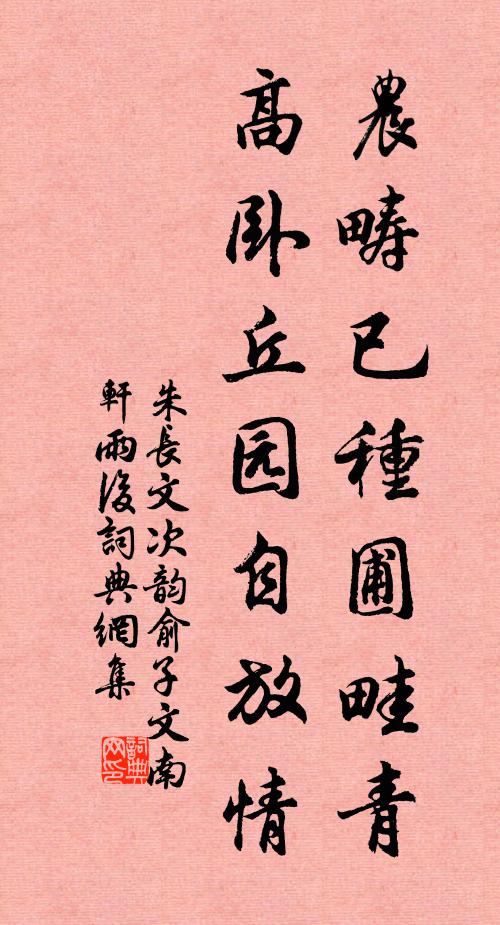 農疇已種圃畦青
高卧丘园自放情
朱長文次韵俞子文南
軒雨後詞典網集
詞典网印